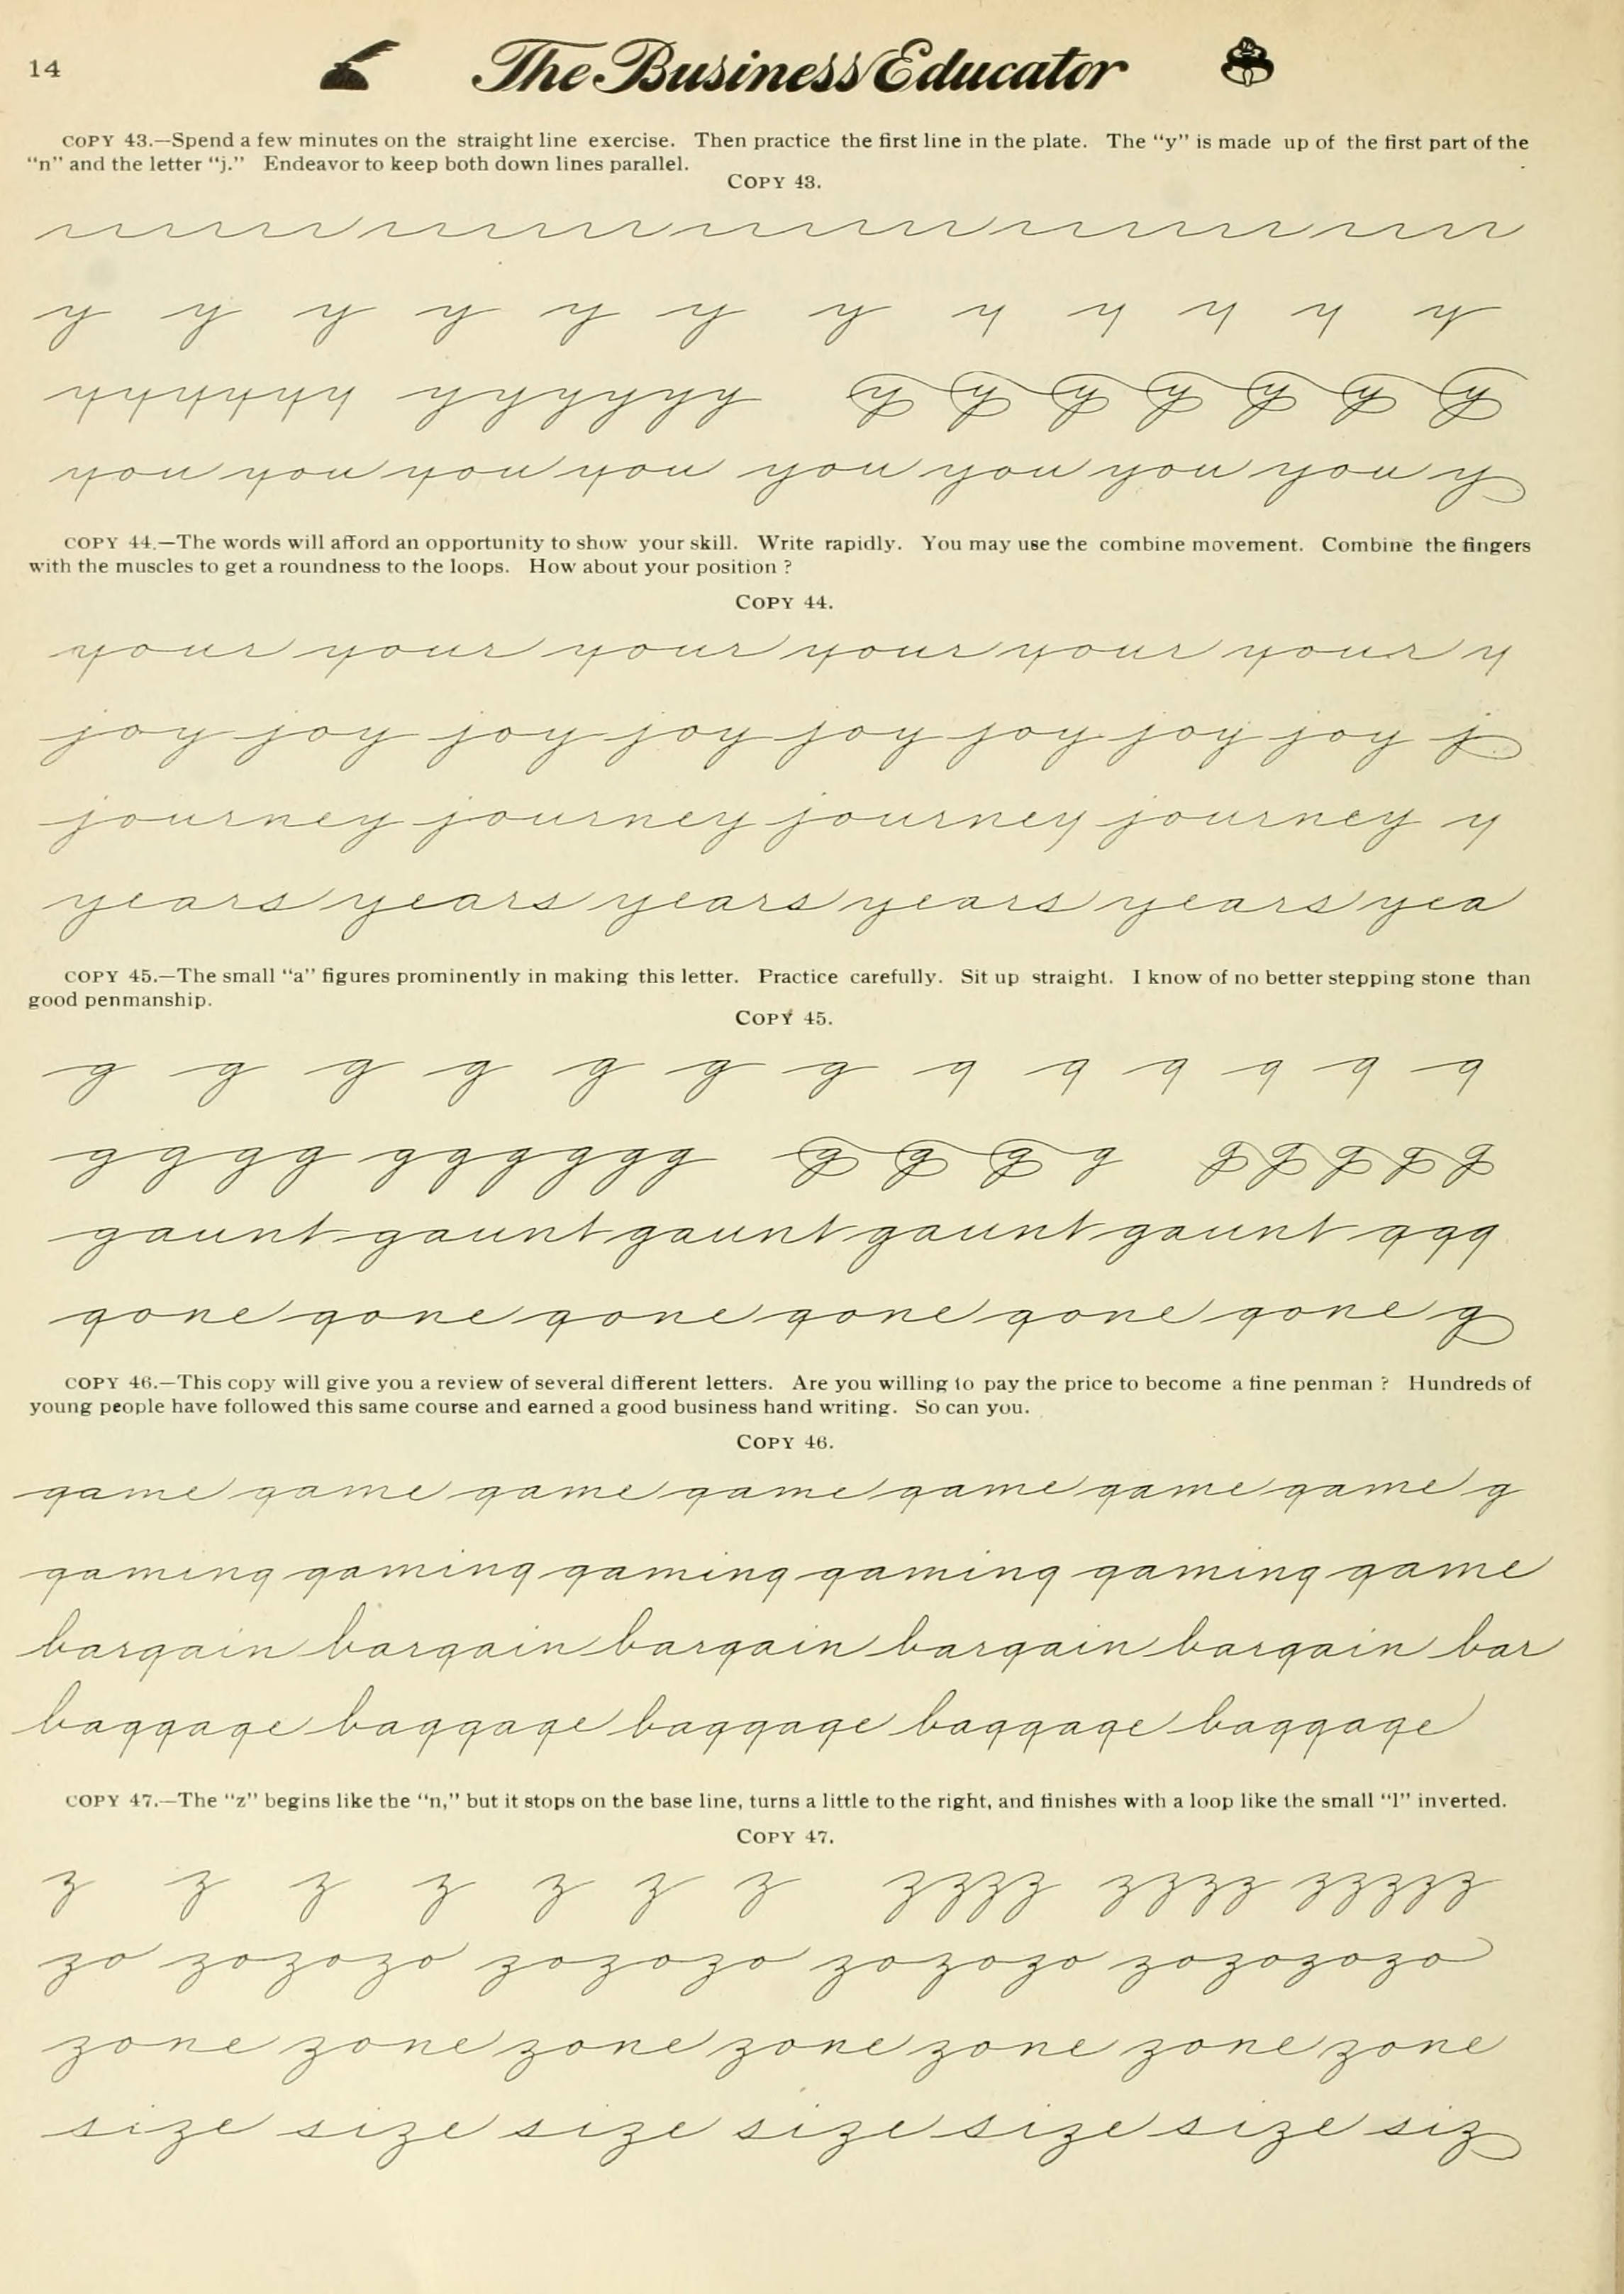 14
The Business Educator
COPY 43.—Spend a few minutes on the straight line exercise. Then practice the first line in the plate. The "y" is made up of the first part of the
"n" and the letter "j." Endeavor to keep both down lines parallel.
COPY 43.
y y y y y y y y y y y y
yyyyyy yyyyyyy y y y y y y y
you you you you you you you you y
COPY 44.—The words will afford an opportunity to show your skill. Write rapidly. You may use the combine movement. Combine the fingers
with the muscles to get a roundness to the loops. How about your position ?
COPY 44.
your your your your your your y
joy joy joy joy joy joy joy joy j
journey journey journey journey y
years years years years years yea
COPY 45.—The small "a" figures prominently in making this letter. Practice carefully. Sit up straight. I know of no better stepping stone than
good penmanship.
COPY 45.
g g g g g g g g g g g g g
gggg gggggg g g g g ggggg
gaunt gaunt gaunt gaunt gaunt ggg
gone gone gone gone gone gone g
COPY 46.—This copy will give you a review of several different letters. Are you willing to pay the price to become a fine penman ? Hundreds of
young people have followed this same course and earned a good business hand writing. So can you.
COPY 46.
game game game game game game game g
gaming gaming gaming gaming gaming game
bargain bargain bargain bargain bargain bar
baggage baggage baggage baggage baggage
COPY 47.—The "z" begins like the "n," but it stops on the base line, turns a little to the right, and finishes with a loop like the small "l" inverted.
COPY 47.
z z z z z z z zzzz zzzz zzzzz
zo zozozo zozozo zozozo zozozozo
zone zone zone zone zone zone zone
size size size size size size siz